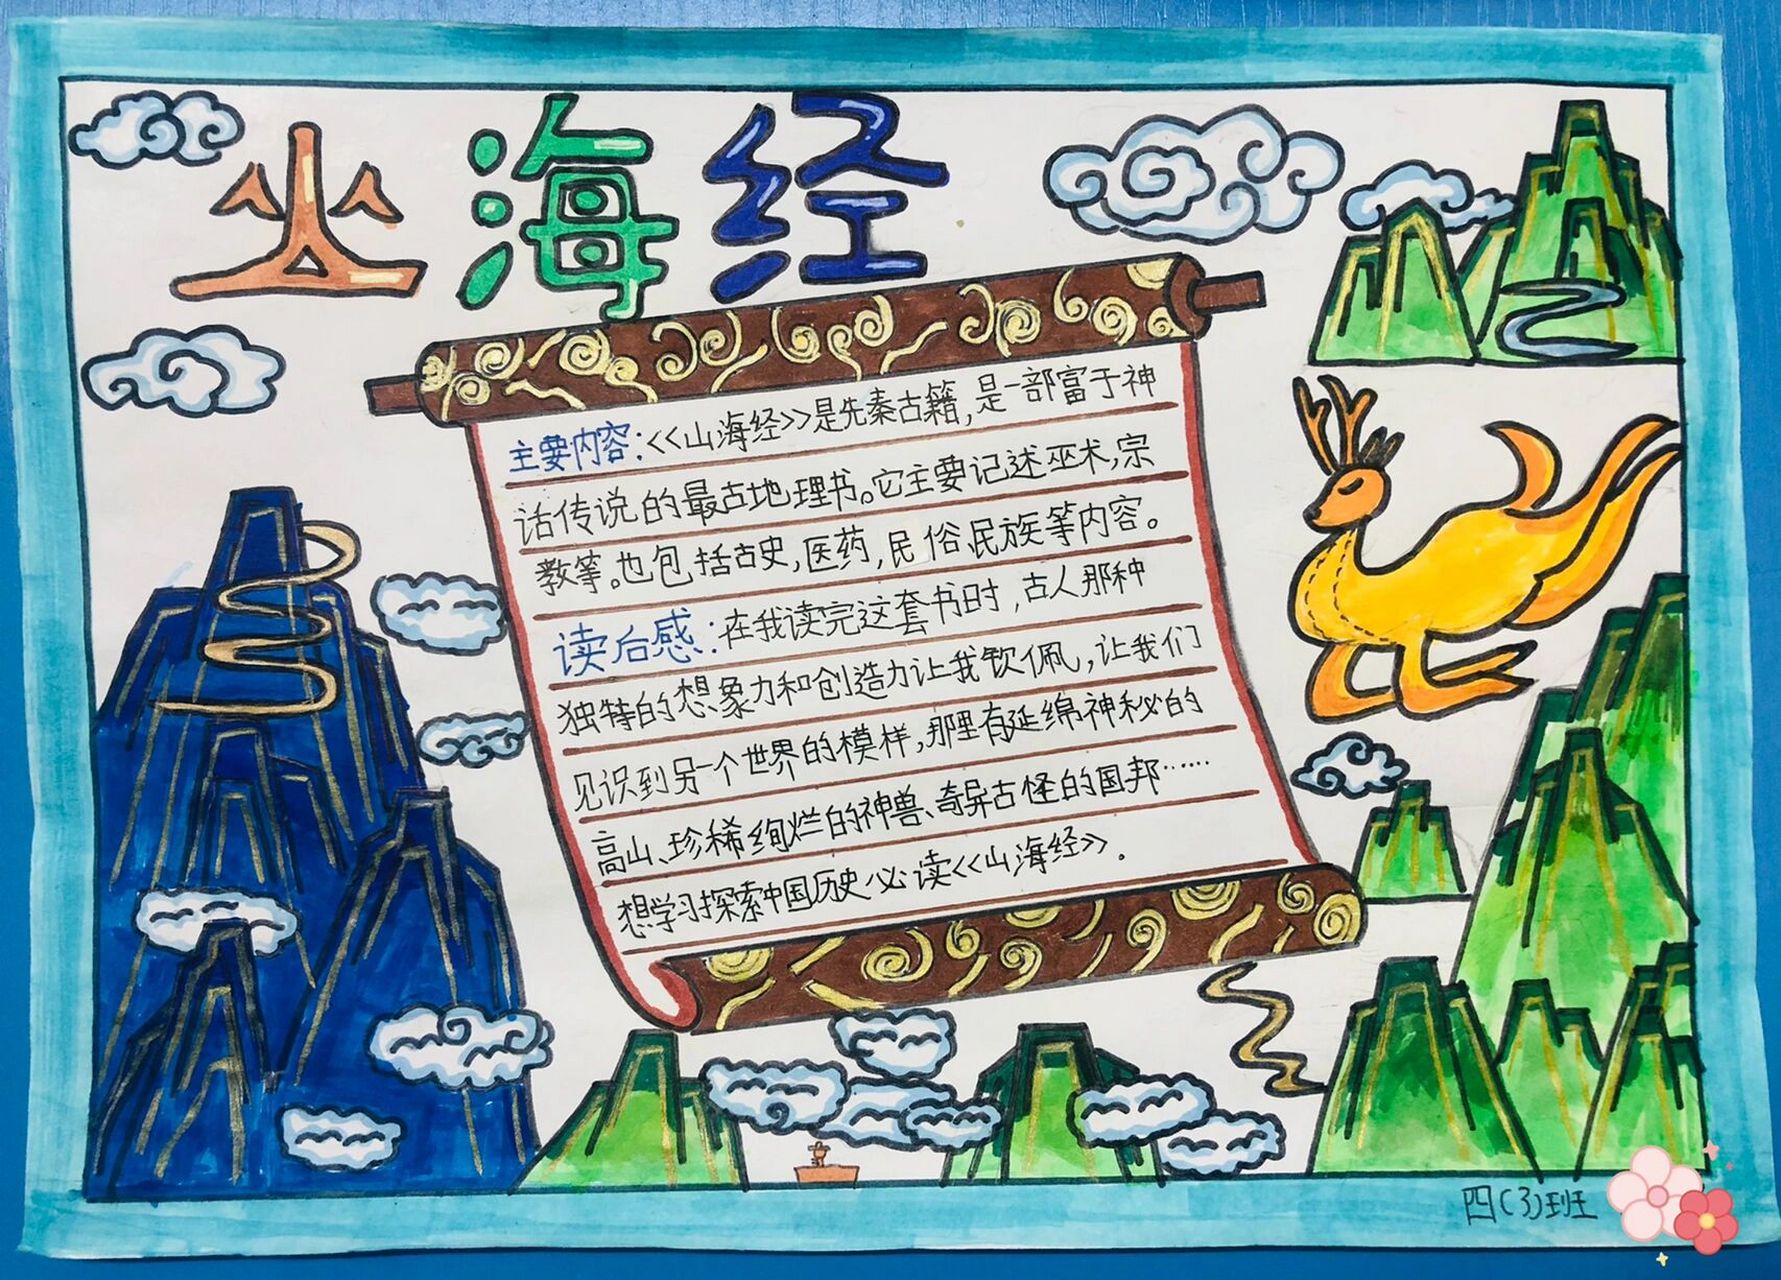 山海经
主要内容:<<山海经>>是先秦古籍,是一部富于神
话传说的最古地理书。它主要记述巫术,宗
教等。也包括古史,医药,民俗,民族等内容。
读后感:在我读完这套书时,古人那种
独特的想象力和创造力让我钦佩,让我们
见识到另一个世界的模样,那里有延绵神秘的
高山、珍稀绚烂的神兽、奇异古怪的国邦……
想学习探索中国历史必读<<山海经>>.
四(3)班